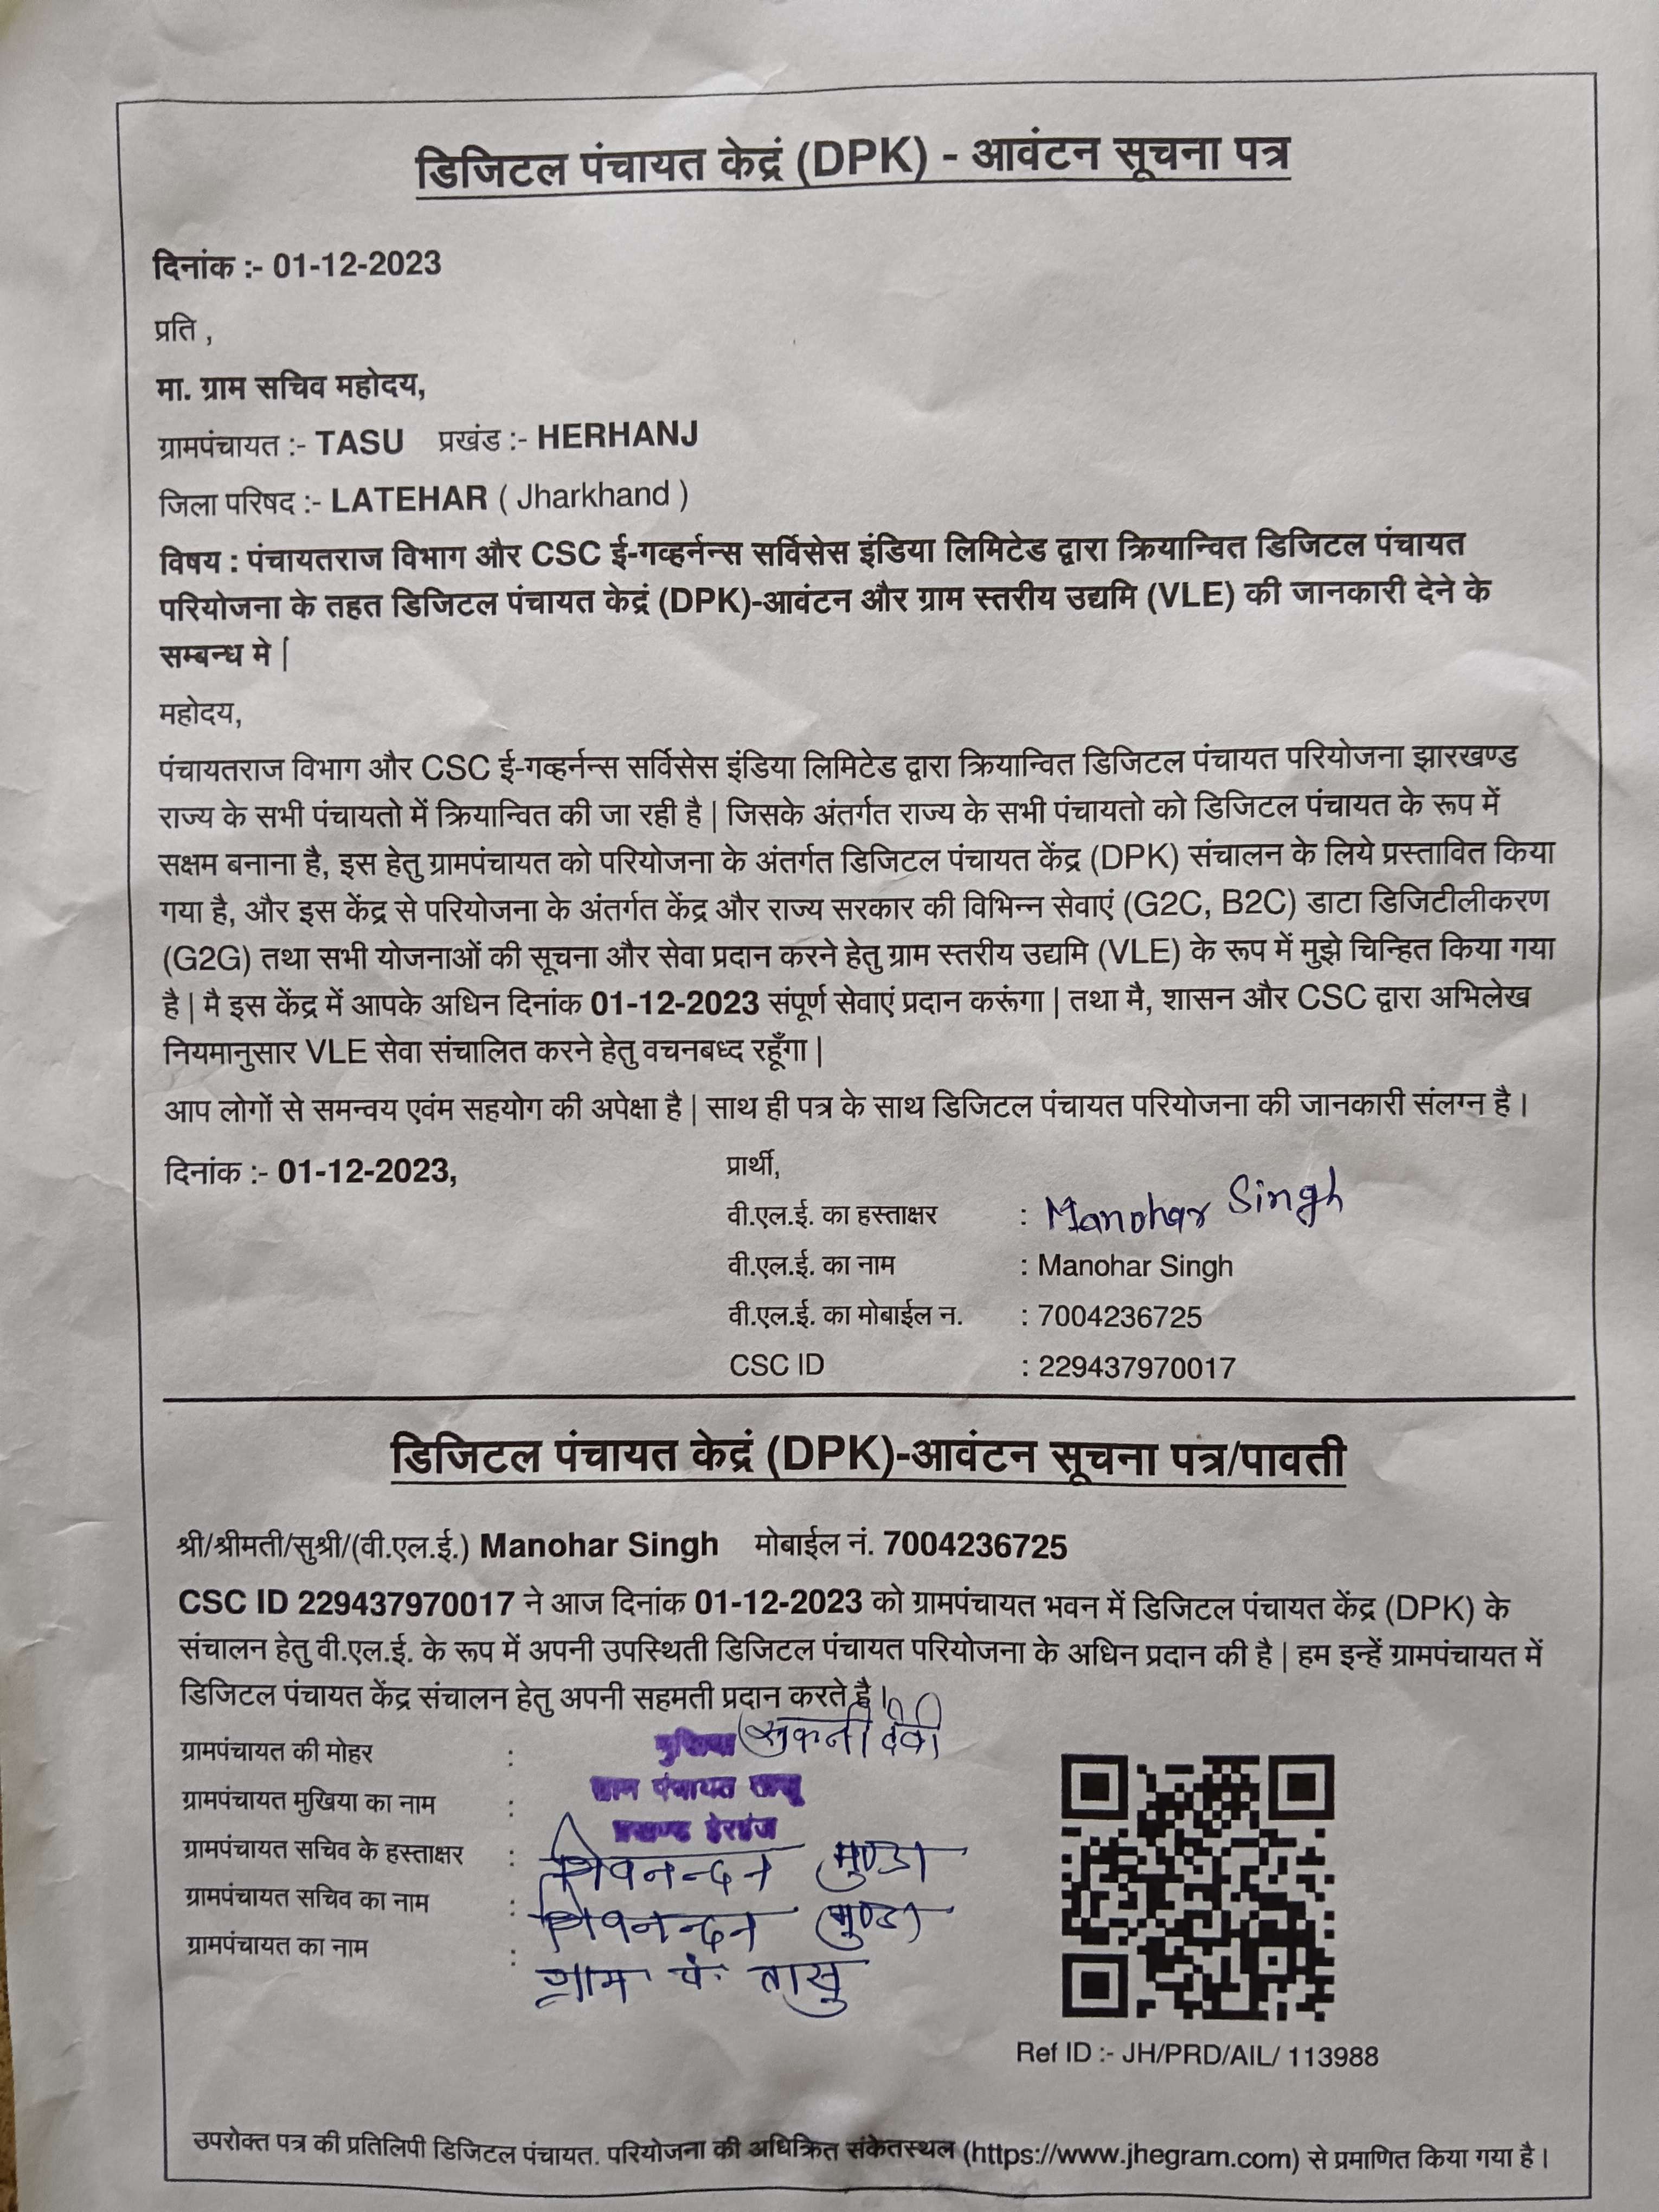 डिजिटल पंचायत केद्रं (DPK) - आवंटन सूचना पत्र
दिनांक :- 01-12-2023
प्रति ,
मा. ग्राम सचिव महोदय,
ग्रामपंचायत :- TASU प्रखंड :- HERHANJ
जिला परिषद :- LATEHAR ( Jharkhand )
विषय : पंचायतराज विभाग और CSC ई-गव्हर्नन्स सर्विसेस इंडिया लिमिटेड द्वारा क्रियान्वित डिजिटल पंचायत
परियोजना के तहत डिजिटल पंचायत केद्रं (DPK)-आवंटन और ग्राम स्तरीय उद्यमि (VLE) की जानकारी देने के
सम्बन्ध मे |
महोदय,
पंचायतराज विभाग और CSC ई-गव्हर्नन्स सर्विसेस इंडिया लिमिटेड द्वारा क्रियान्वित डिजिटल पंचायत परियोजना झारखण्ड
राज्य के सभी पंचायतो में क्रियान्वित की जा रही है | जिसके अंतर्गत राज्य के सभी पंचायतो को डिजिटल पंचायत के रूप में
सक्षम बनाना है, इस हेतु ग्रामपंचायत को परियोजना के अंतर्गत डिजिटल पंचायत केंद्र (DPK) संचालन के लिये प्रस्तावित किया
गया है, और इस केंद्र से परियोजना के अंतर्गत केंद्र और राज्य सरकार की विभिन्न सेवाएं (G2C, B2C) डाटा डिजिटीलीकरण
(G2G) तथा सभी योजनाओं की सूचना और सेवा प्रदान करने हेतु ग्राम स्तरीय उद्यमि (VLE) के रूप में मुझे चिन्हित किया गया
है | मै इस केंद्र में आपके अधिन दिनांक 01-12-2023 संपूर्ण सेवाएं प्रदान करूंगा | तथा मै, शासन और CSC द्वारा अभिलेख
नियमानुसार VLE सेवा संचालित करने हेतु वचनबध्द रहूँगा |
आप लोगों से समन्वय एवंम सहयोग की अपेक्षा है | साथ ही पत्र के साथ डिजिटल पंचायत परियोजना की जानकारी संलग्न है।
दिनांक :- 01-12-2023, प्रार्थी,
वी.एल.ई. का हस्ताक्षर : Manohar Singh
वी.एल.ई. का नाम : Manohar Singh
वी.एल.ई. का मोबाईल न. : 7004236725
CSC ID : 229437970017
डिजिटल पंचायत केद्रं (DPK)-आवंटन सूचना पत्र/पावती
श्री/श्रीमती/सुश्री/(वी.एल.ई.) Manohar Singh मोबाईल नं. 7004236725
CSC ID 229437970017 ने आज दिनांक 01-12-2023 को ग्रामपंचायत भवन में डिजिटल पंचायत केंद्र (DPK) के
संचालन हेतु वी.एल.ई. के रूप में अपनी उपस्थिती डिजिटल पंचायत परियोजना के अधिन प्रदान की है | हम इन्हें ग्रामपंचायत में
डिजिटल पंचायत केंद्र संचालन हेतु अपनी सहमती प्रदान करते है।
ग्रामपंचायत की मोहर : मुखिया सुकनी देवी
ग्राम पंचायत तासू
ग्रामपंचायत मुखिया का नाम :
प्रखण्ड हेरहंज
ग्रामपंचायत सचिव के हस्ताक्षर : शिवनन्दन मुण्डा
ग्रामपंचायत सचिव का नाम : शिवनन्दन मुण्डा
ग्रामपंचायत का नाम : ग्राम पं. तासु
Ref ID :- JH/PRD/AIL/ 113988
उपरोक्त पत्र की प्रतिलिपी डिजिटल पंचायत. परियोजना की अधिक्रित संकेतस्थल (https://www.jhegram.com) से प्रमाणित किया गया है।